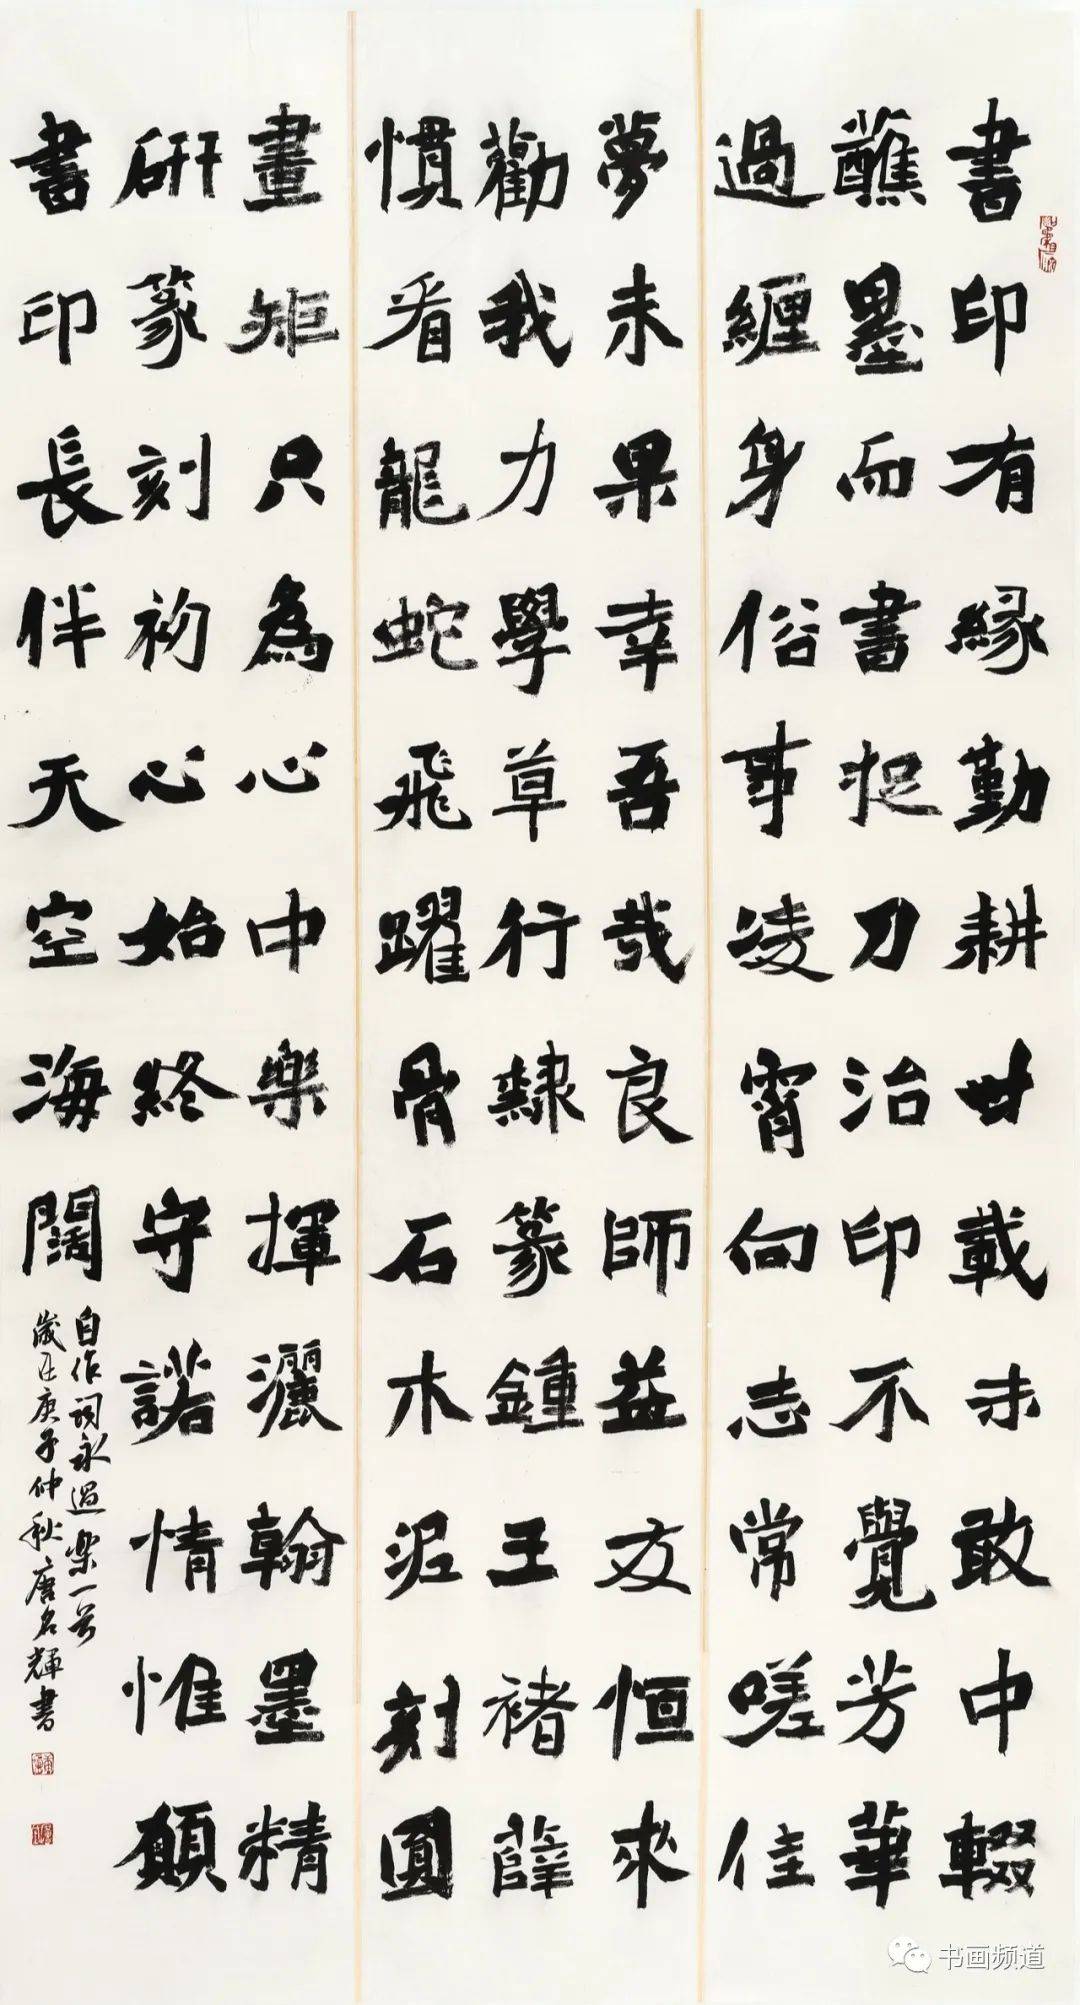 書印有緣勤耕廿載未敢中輟
醮墨而書捉刀治印不覺芳華
過纏身俗事凌霄向志常嗟佳
夢未果幸吾哉良師益友恒來
勸我力學草行隸篆鍾王褚薛
慣看龍蛇飛躍骨石木泥刻圓
畫矩只為心中樂揮灑翰墨精
研篆刻初心始終守諾情惟願
書印長伴天空海闊
自作詞永遇樂一首
歲在庚子仲秋唐名輝書
书画频道